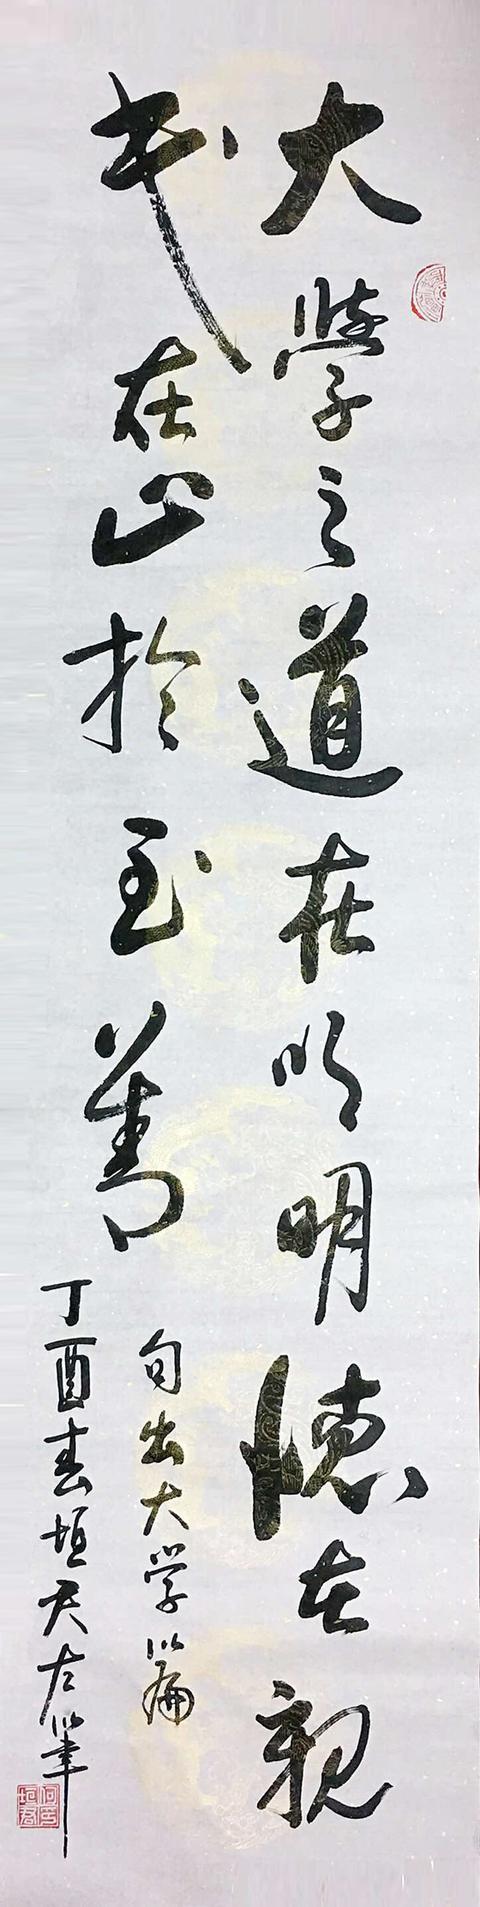 大學之道在明明德在親
民在止於至善
句出大学篇
丁酉春垣君左筆